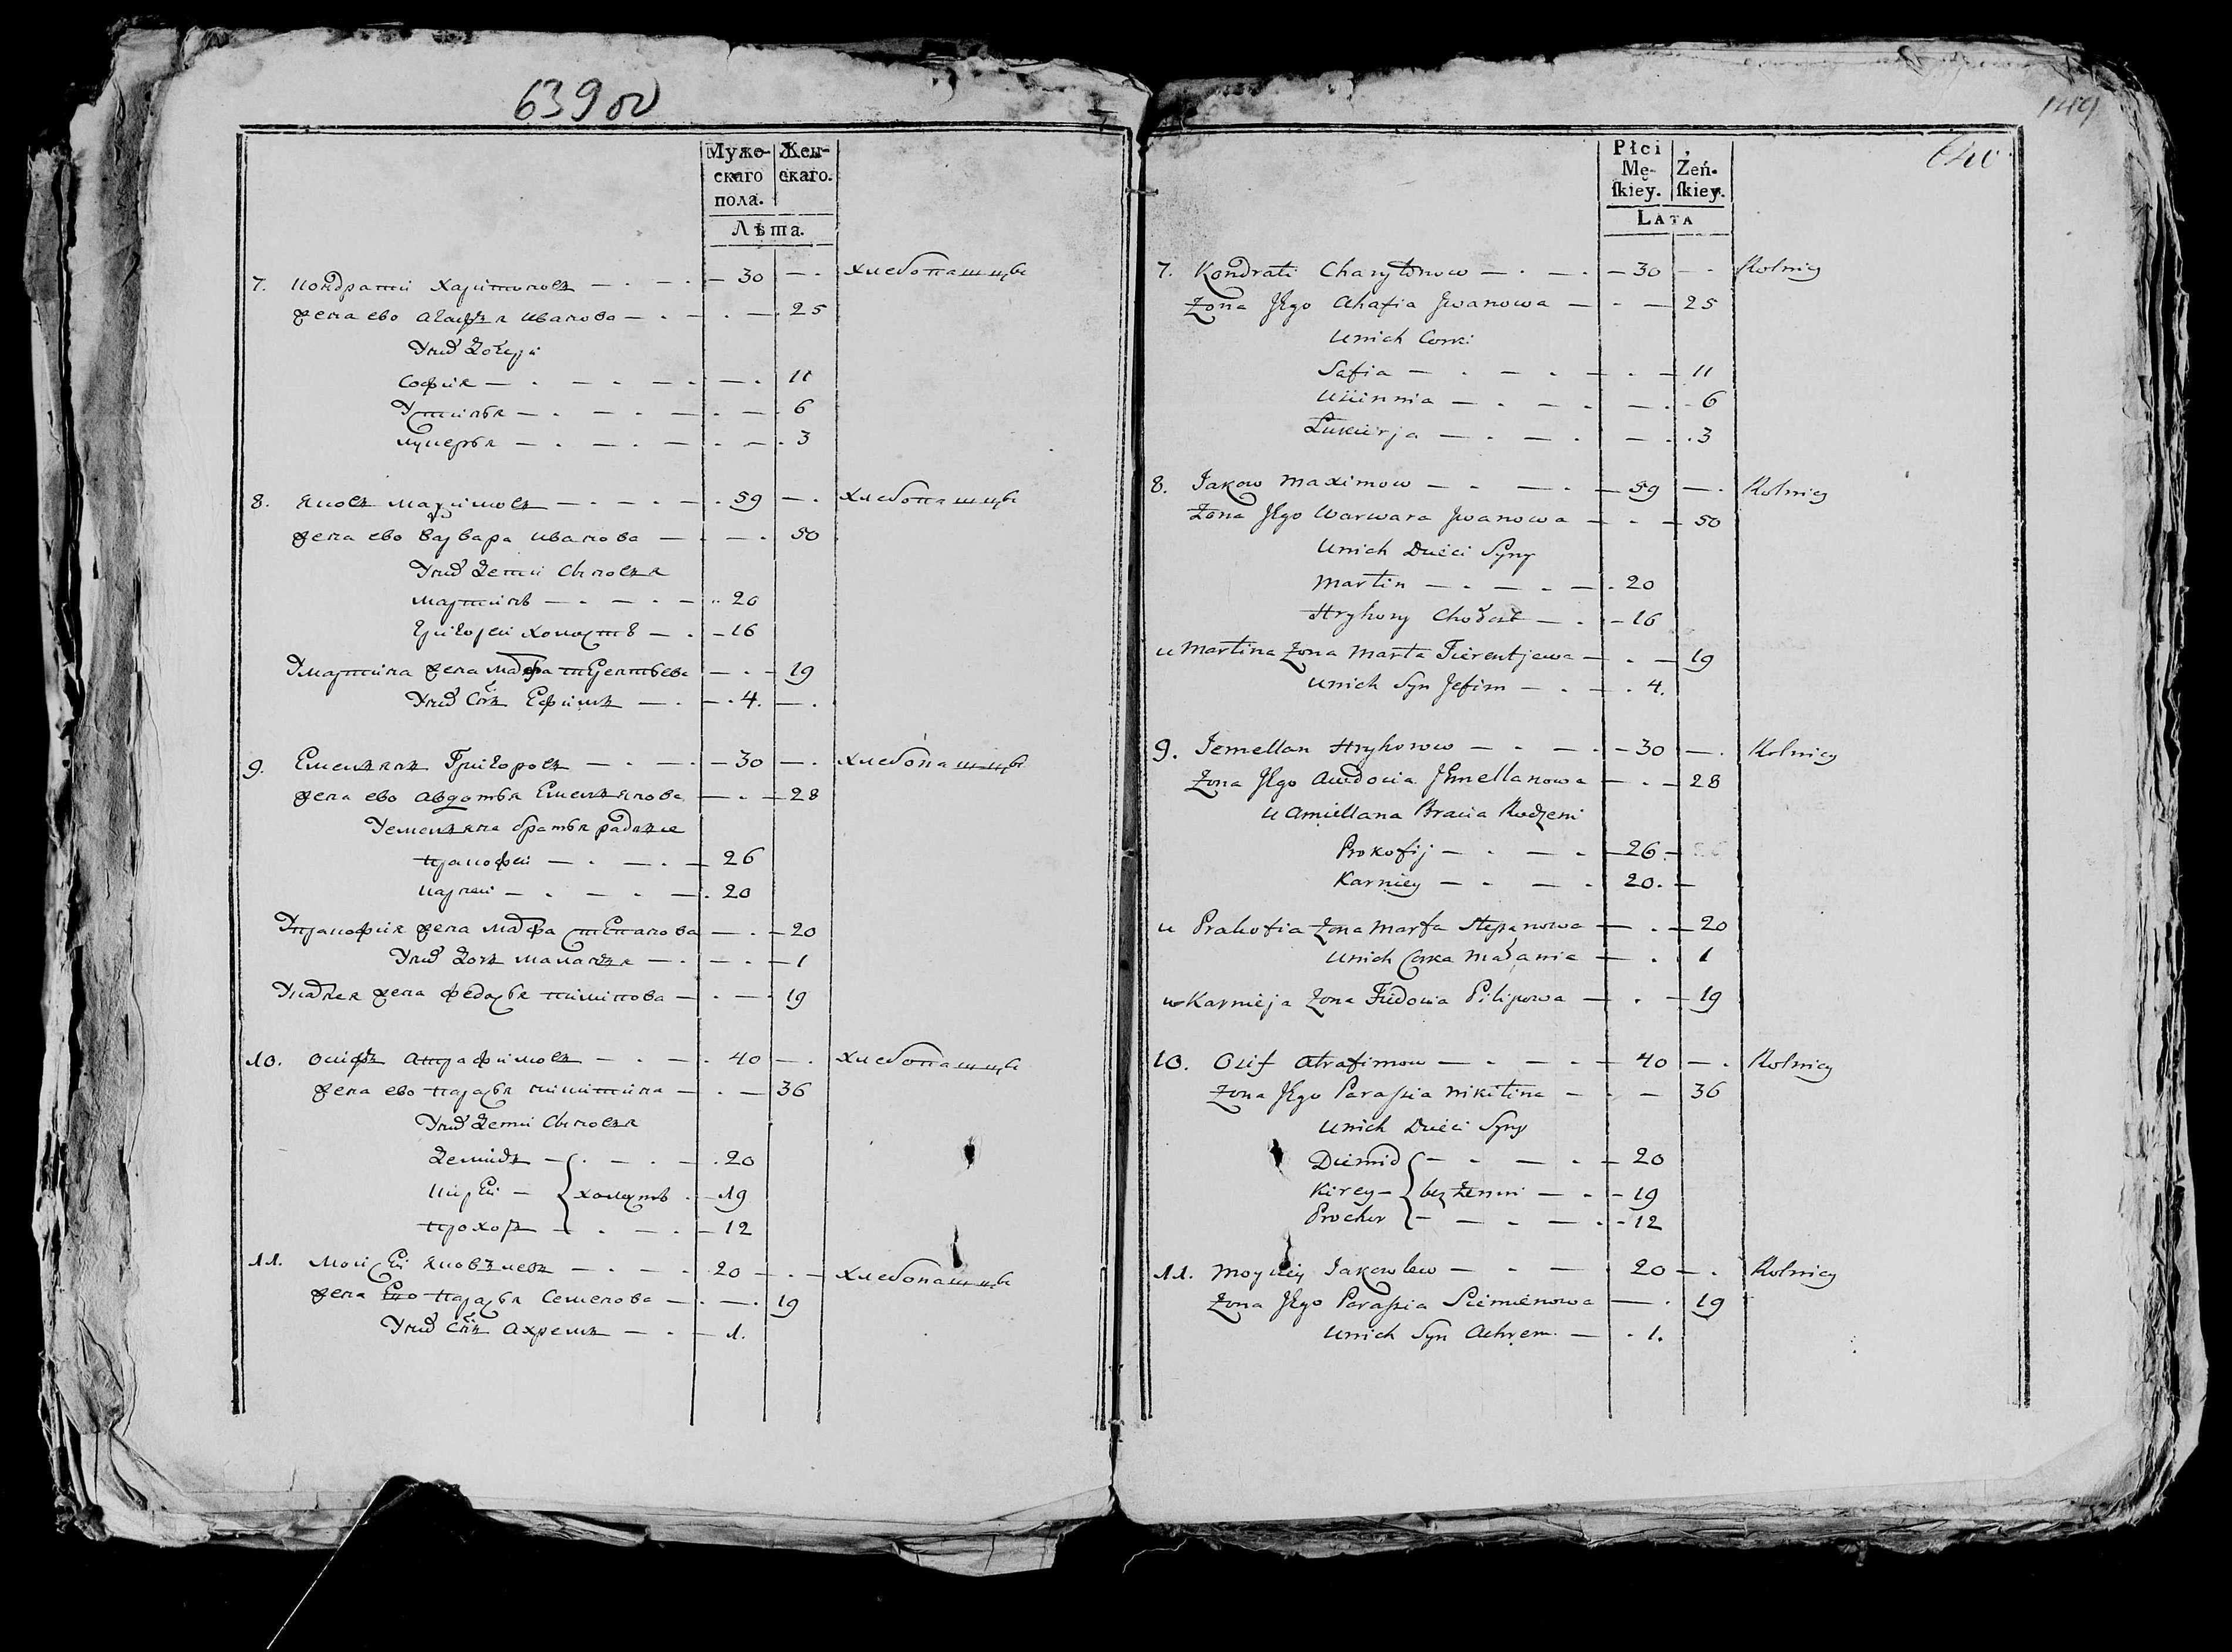 639 об
Муже-
скаго
пола.
Жен-
скаго.
Лѣта.
7. Кондрати Харитоновъ — 30 — хлебопашцы
жена ево Агафья Иванова — 25
У них дочери
София — 11
Устинья — 6
Лукерья — 3
8. Яковъ Максимовъ — 59 — хлебопашцы
жена ево Варвара Иванова — 50
У них дети сыновья
Мартинъ — 20
Григорей холостъ — 16
У Мартина жена Марфа Терентьева — 19
У них сынъ Ефимъ — 4. —
9. Емельянъ Григоровъ — 30 — хлебопашцы
жена ево Авдотья Емельянова — 28
У Емельяна братья родные
Пракофей — 26
Карней — 20
У Пракофия жена Марфа Степанова — 20
У них дочь Маланья — 1
У Карнея жена Федосья Пилипова — 19
10. Осифъ Атрафимовъ — 40 — хлебопашцы
жена ево Парасья Микитина — 36
У них дети сыновья
Демидъ — 20
Кирей — холости — 19
Прохоръ — 12
11. Моисей Яковълевъ — 20 — хлебопашцы
жена Ево Парасья Семенова — 19
У них сынъ Ахремъ — 1.
149
640
Płci
Mę-
ſkiey.
Żeń-
ſkiey.
LATA
7. Kondrati Charytonow — 30 — Rolnicy
Zona Jego Ahafia Jwanowa — 25
Unich Corki
Safia — 11
Uscinnia — 6
Łukierja — 3
8. Jakow Maximow — 59 — Rolnicy
Zona Jego Warwara Jwanowa — 50
Unich Dzieci Syny
Martin — 20
Hryhory Chołost — 16
u Martina Zona Marta Tierentjewa — 19
Unich Syn Jefim — 4.
9. Jemellan Hryhorow — 30 — Rolnicy
Zona Jego Audocia Jemellanowa — 28
u Amiellana Bracia Rodzeni
Prokofij — 26 —
Karniey — 20. —
u Prakofia Zona Marfa Stepanowa — 20
Unich Corka Małania — 1
u Karnieja Zona Fiedocia Pilipowa — 19
10. Osif Atrafimow — 40 — Rolnicy
Zona Jego Parassia Nikitina — 36
Unich Dzieci Syny
Diemid — 20
Kirey — bez Zenni — 19
Prochor — 12
11. Moysiey Jakowlew — 20 — Rolnicy
Zona Jego Parassia Siemienowa — 19
Unich Syn Achrem — 1.